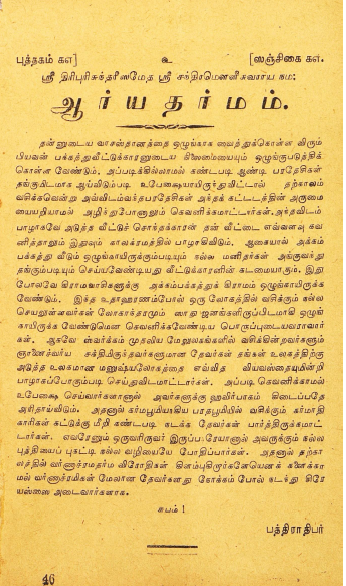 புத்தகம் கஎ] உ [ஸஞ்சிகை கஎ.
ஸ்ரீ திரிபுரிசுந்தரீஸமேத ஸ்ரீ சந்திரமௌளீசுவராய நம:
ஆர்யதர்மம்.
தன்னுடைய வாசஸ்தானத்தை ஒழுங்காக வைத்துக்கொள்ள விரும்
பியவன் பக்கத்துவீட்டுக்காரனுடைய நிலைமையையும் ஒழுங்குபடுத்திக்
கொள்ள வேண்டும். அப்படிக்கில்லாமல் கண்டபடி ஆண்டி பரதேசிகள்
தங்குமிடமாக ஆய்விடும்படி உபேக்ஷையாயிருந்துவிட்டால் தற்காலம்
வசிக்கவென்று அவ்விடம்வந்தபரதேசிகள் அந்தக் கட்டடத்தின் அருமை
யையறியாமல் அழிந்துபோனாலும் கௌனிக்கமாட்டார்கள். அந்தவிடம்
பாழாகவே அடுத்த வீட்டுச் சொந்தக்காரன் தன் வீட்டை எவ்வளவு கவ
னித்தாலும் இதுவும் காலக்ரமத்தில் பாழாகிவிடும். ஆகையால் அக்கம்
பக்கத்து வீடும் ஒழுங்காயிருக்கும்படியும் நல்ல மனிதர்கள் அங்குவந்து
தங்கும்படியும் செய்யவேண்டியது வீட்டுக்காரனின் கடமையாகும். இது
போலவே கிராமவாசிகளுக்கு அக்கம்பக்கத்துக் கிராமம் ஒழுங்காயிருக்க
வேண்டும். இந்த உதாஹரணம்போல் ஒரு லோகத்தில் வசிக்கும் நல்ல
செயலுள்ளவர்கள் லோகாந்தரமும் ஸாதுஜனங்களிருப்பிடமாகி ஒழுங்
காயிருக்க வேண்டுமென கௌனிக்கவேண்டிய பொருப்புடையவராவார்
கள். ஆகவே ஸ்வர்க்கம் முதலிய மேலுலகங்களில் வசிக்கின்றவர்களும்
ஞானைச்வர்ய சக்தியிகுந்தவர்களுமான தேவர்கள் தங்கள் உலகத்திற்கு
அடுத்த உலகமான மனுஷ்யலோகத்தை எவ்வித வியவஸ்தையுமின்றி
பாழாகப்போகும்படி செய்துவிடமாட்டார்கள். அப்படி கௌனிக்காமல்
உபேக்ஷை செய்வார்களானால் அவர்களுக்கு ஹவிர்பாகம் கிடைப்பதே
அரிதாய்விடும். அதனால் கர்மபூமியாகிய பாரதபூமியில் வசிக்கும் கர்மாதி
காரிகள் கட்டுக்கு மீறி கண்டபடி நடக்க தேவர்கள் பார்த்திருக்கமாட்
டார்கள். எவரேனும் ஒருவரிருவர் இருப்பரேயானால் அவருக்கும் நல்ல
புத்தியைப் புகட்டி நல்ல வழியையே போதிப்பார்கள். அதனால் தற்கா
லத்தில் வர்ணாச்ரமதர்ம விரோதிகள் இனம்புமிழர்களேயெனக் கணக்கா
மல் வர்ணாச்ரமிகள் மேலான தேவர்களது நோக்கம் போல் நடந்து சிரே
யஸ்ஸை அடைவார்களாக.
சுபம் !
பத்திராதிபர்
46